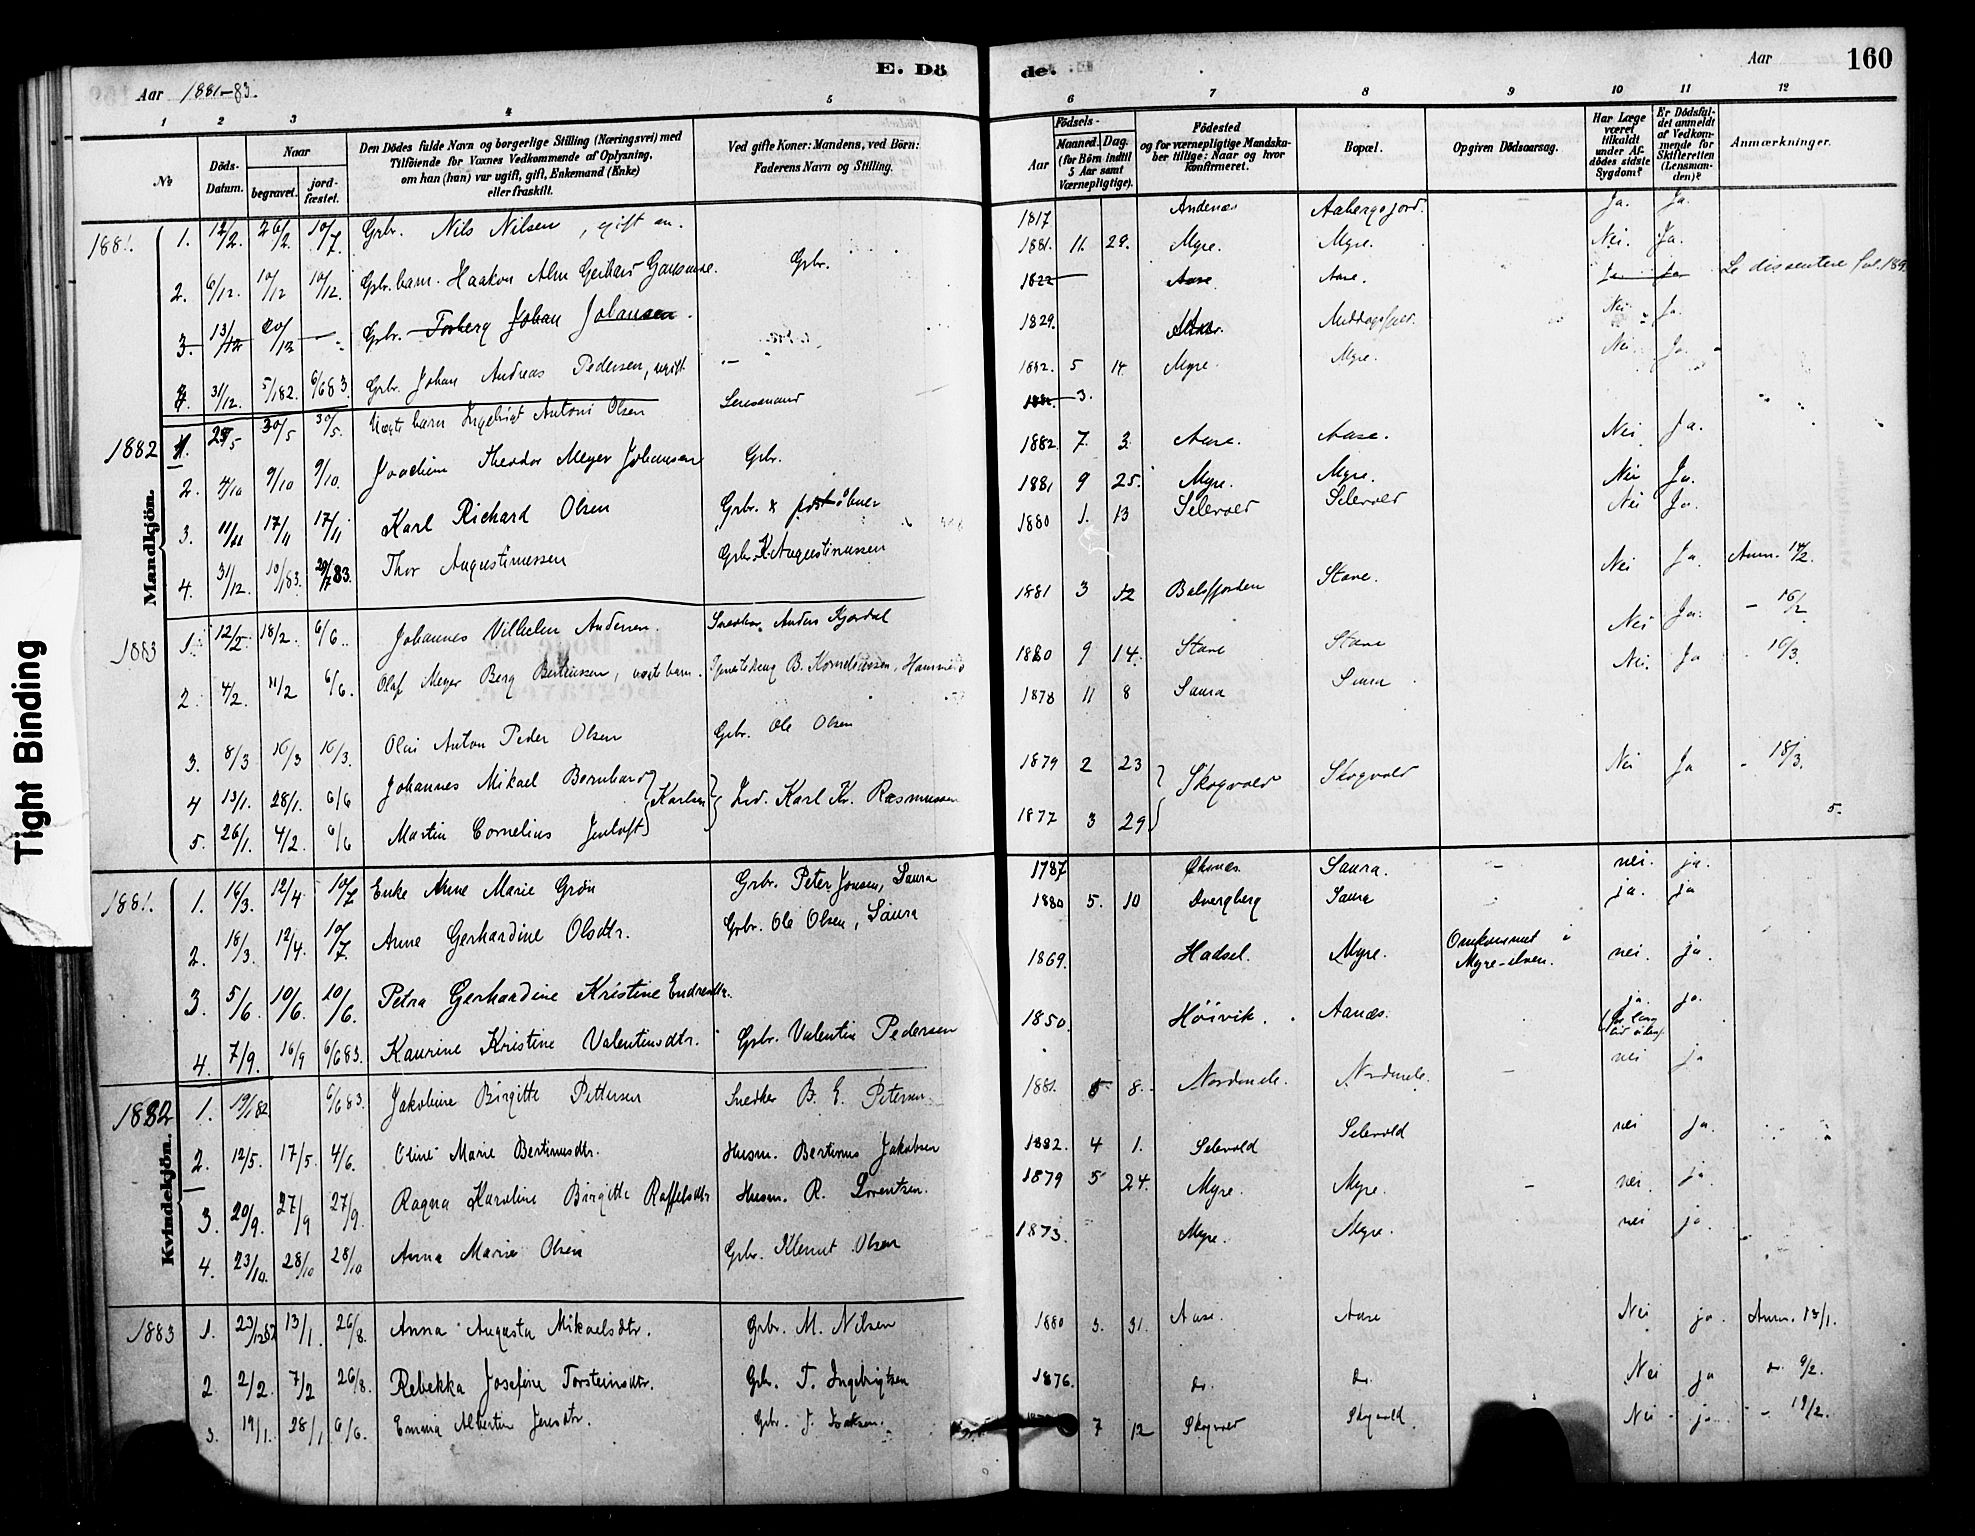 E. Döde.
Aar 1881-83.
Aar 160
1 2 3 4 5 6 7 8 9 10 11 12
№
Döds-Datum.
Naar
begravet.
jord-fæstet.
Den Dödes fulde Navn og borgerlige Stilling (Næringsvei) med
Tilföiende for Voxnes Vedkommende af Oplysning,
om han (hun) var ugift, gift, Enkemand (Enke)
eller fraskilt.
Ved gifte Koner: Mandens, ved Börn:
Faderens Navn og Stilling.
Födsels-
Aar
Maaned. Dag.
(for Börn indtil
5 Aar samt
Værnepligtige).
Födested
og for værnepligtige Mandska-
ber tillige: Naar og hvor
konfirmeret.
Bopæl.
Opgiven Dödsaarsag.
Har Læge
været
tilkaldt
under Af-
dödes sidste
Sygdom?
Er Dödsfal-
det anmeldt
af Vedkom-
mende for
Skifteretten
(Lensman-
den)?
Anmærkninger.
Mandkjön.
1881. 1. 12/2. 26/2. 10/7 Grbr. Nils Nilsen, gift an. 1817 Andenæs Ja. Ja.
2. 6/12. 10/12 10/12. Grbr. barn. Haakon Alm Gerhard Grbr. 1881. 11. 29. Myre. Myre. Nei. Ja.
3. 13/12 20/12 — Grbr. Torberg Johan Johansen. 1822 Aase. Aase. Ja Ja Se dissentere fol. 189.
3. 31/12. 5/182. 6/683. Grbr. Johan Andreas Pedersen, ugift 1829. Nei Ja.
1882 1. 5 30/5 30/5. Uægte barn Ingebrigt Antoni Olsen 1882. 5 14. Myre. Myre. Nei Ja.
2. 4/10 9/10 9/10. Joachim Theodor Meyer Johansen Grbr. 1882 7. 3. Aase. Aase. Nei Ja.
3. 11/11 17/11 17/11 Karl Richard Olsen Grbr. & postaabner 1881 9 25. Myre. Myre. Nei Ja.
4. 31/12. 10/183. 83. Thor Augustinussen Grbr. K. Augustinussen 1880 1. 13 Selevold Selevold Nei Ja.
1883 1. 12/2. 18/2. 6/6. Johannes Vilhelm Andersen. Snedker Anders Kjørdal 1881 3 12 Balsfjorden Stave. Nei Ja. Anm. 14/2.
2. 4/2. 11/2 6/6. Olaf Meyer Berg Berteussen, uægte barn. B. Korneliussen, 1880 9 14. Stave Stave Nei Ja. - 16/2
3. 8/3 16/3 16/3. Olai Anton Peder Olsen Grbr. Ole Olsen 1878 11 8 Saura Saura Nei. Ja - 16/3.
4 13/1. 28/1. 6/6 Johannes Mikael Bernhard } Karlsen } Ind. Karl Kr. Rasmussen 1879 2 23 } Skogvold Skogvold Nei Ja - 18/3.
5. 26/1. 4/2. 6/6 Martin Cornelius Jenloft 1877 3 29 5.
Kvindekjön.
1881. 1. 16/3. 12/4. 10/7 Enke Anne Marie Grön Grbr. Peter Jonsen, Saura 1787 Øksnæs. Saura. - nei. ja.
2. 18/3. 12/4. 10/7. Anne Gerhardine Olsdtr. Grbr. Ole Olsen, Saura 1880 5. 10 Dverberg Saura ja. ja
3 5/6. 10/6. 10/6. Petra Gerhardine Kristine Endresdtr. 1869. Hadsel. Myre. Omkommet i Myre-elven. nei. ja.
4. 7/9. 16/9 6/683. Kaurine Kristine Valentinsdtr. Grbr. Valentin Pedersen 1850. Höivik. Aanæs. ja. ja.
1882 1. 19/182. 6/683. Jakobine Birgitte Pettersen Snedker B. E. Petersen 1881. 5 8. Nordmele. Nordmele. nei ja
2. 12/5. 17/5. 4/6. Oline Marie Bertinusdtr. Husm. Bertinus Jakobsen 1882. 4 1. Selevold Selevold nei ja.
3. 20/9. 27/9 27/9. Ragna Karoline Birgitte Raffelsdtr. Husm. R. Lorentzen. 1879 5 24. Myre. Myre. - nei. ja.
4. 23/10. 28/10 28/10 Anna Marie Olsen Grbr. Klemet Olsen 1873. Myre. Myre. nei ja.
1883 1. 23/1282 13/1. 26/8. Anna Augusta Mikaelsdtr. Grbr. M. Nilsen 1880 3. 31. Aase. Aase Nei ja. Anm. 13/1.
2 2/2. 7/2 26/8. Rebekka Josefine Torsteinsdtr. Grbr. T. Ingebrigtsen 1876. do. do. Nei ja do. 9/2.
3. 19/1. 28/1 6/6. Emma Albertine Jensdtr. Grbr. J. Isaksen. 7 12 Skogvold Skogvold. Nei ja. - 19/2.
Tight Binding